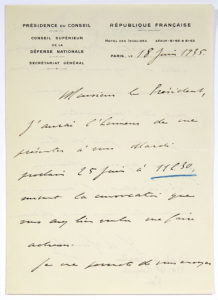 PRÉSIDENCE DU CONSEIL
CONSEIL SUPÉRIEUR
DE LA
DÉFENSE NATIONALE
SECRÉTARIAT GÉNÉRAL
RÉPUBLIQUE FRANÇAISE
HOTEL DES INVALIDES
PARIS, LE 18 Juin 1935
Monsieur le Président,
J'aurai l'honneur de me
présenter à vous Mardi
prochain 25 Juin à 11h30,
suivant la convocation que
vous avez bien voulu me faire
adresser.
Je me permets de vous envoyer